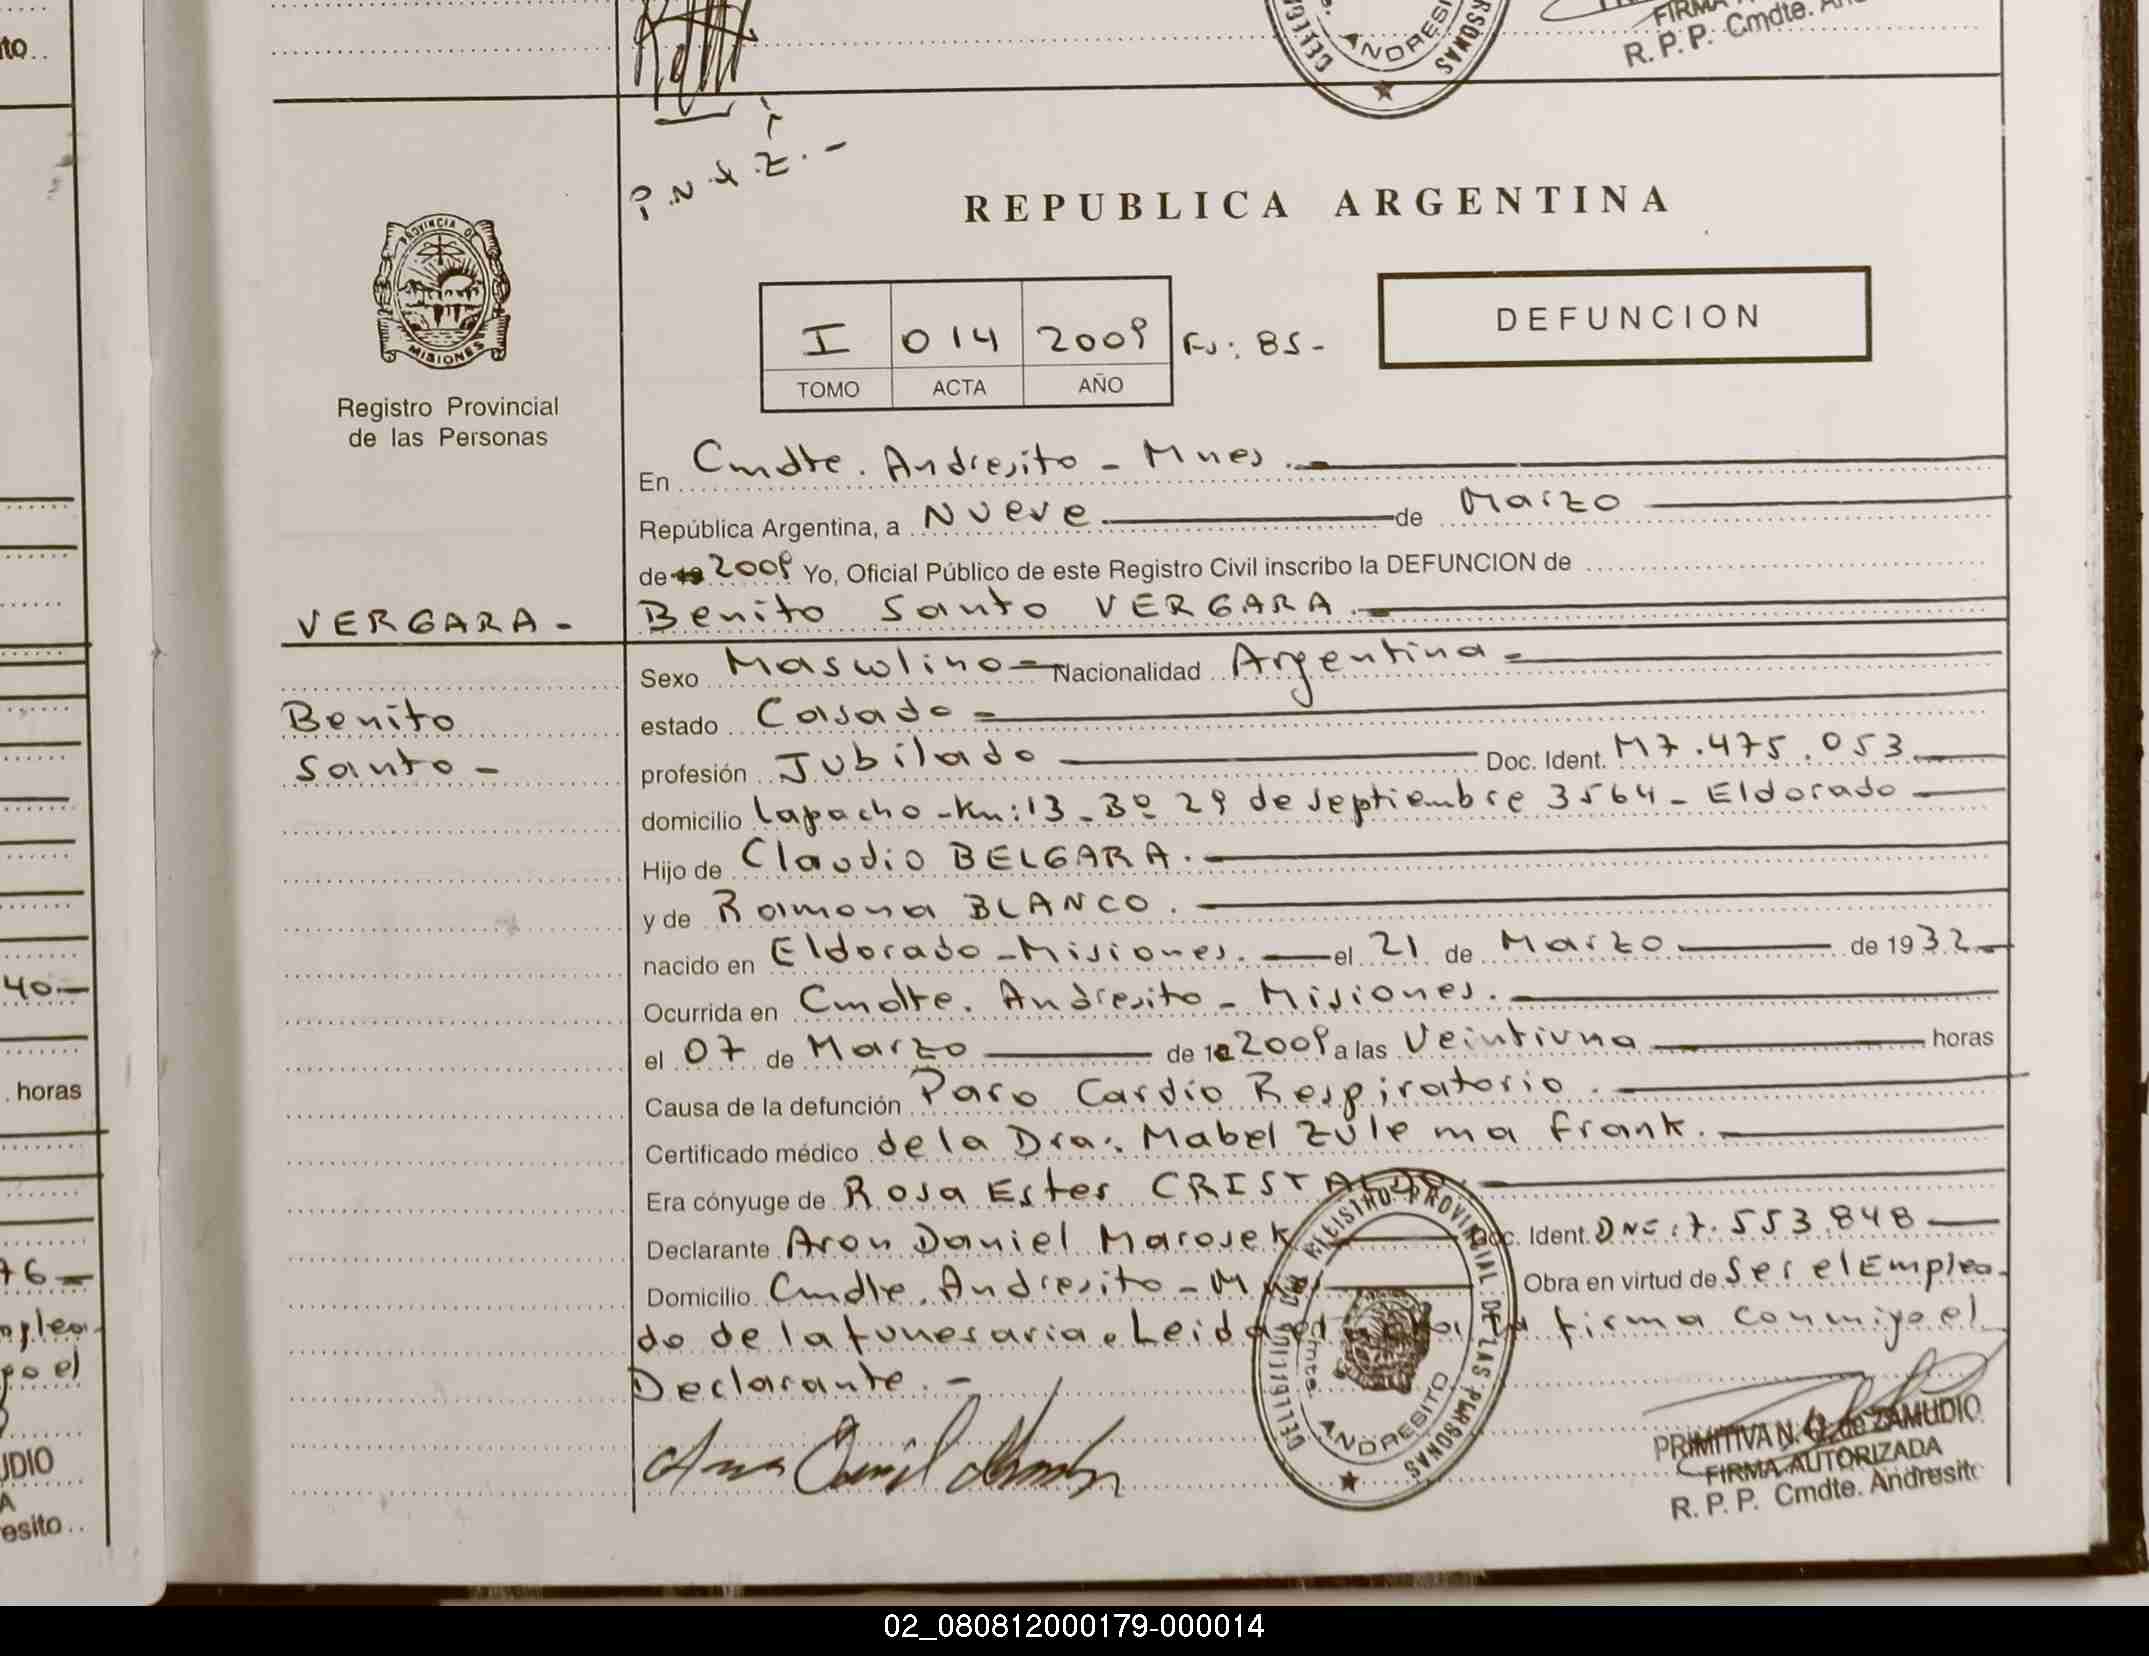 to..
ANDRESI
FIRMA
R. P. P. Cmdte. An
P.N.y.Z.-
PROVINCIA DE
MISIONES
REPUBLICA ARGENTINA
I 014 2009 Fº: 85-
DEFUNCION
TOMO ACTA AÑO
Registro Provincial
de las Personas
En Cmdte. Andresito - Mnes.-
República Argentina, a Nueve de Marzo
de 19 2009 Yo, Oficial Público de este Registro Civil inscribo la DEFUNCION de
VERGARA- Benito Santo VERGARA.-
Sexo Masculino- Nacionalidad Argentina-
Benito estado Casado-
Santo- profesión Jubilado Doc. Ident. M7.475.053
domicilio Lapacho-Km:13-Bº 29 de septiembre 3564-Eldorado
Hijo de Claudio BELGARA.
y de Ramona BLANCO.
nacido en Eldorado-Misiones. el 21 de Marzo de 1932
40- Ocurrida en Cmdte. Andresito - Misiones.
el 07 de Marzo de 2009 a las Veintiuna horas
horas Causa de la defunción Paro Cardio Respiratorio.
Certificado médico de la Dra: Mabel Zulema Frank.
Era cónyuge de Rosa Ester CRISTALDO.
Declarante Aron Daniel Marosek Doc. Ident. DNI:7.553.848
76- Domicilio Cmdte. Andresito - M Obra en virtud de Ser el Emplea-
do de la funeraria. Leida el acta firma conmigo el
po el Declarante.-
REGISTRO PROVINCIAL DE LAS PERSONAS
Cmte. ANDRESITO
PRIMITIVA N. de ZAMUDIO
UDIO FIRMA AUTORIZADA
esito.. R. P. P. Cmdte. Andresito
02_080812000179-000014